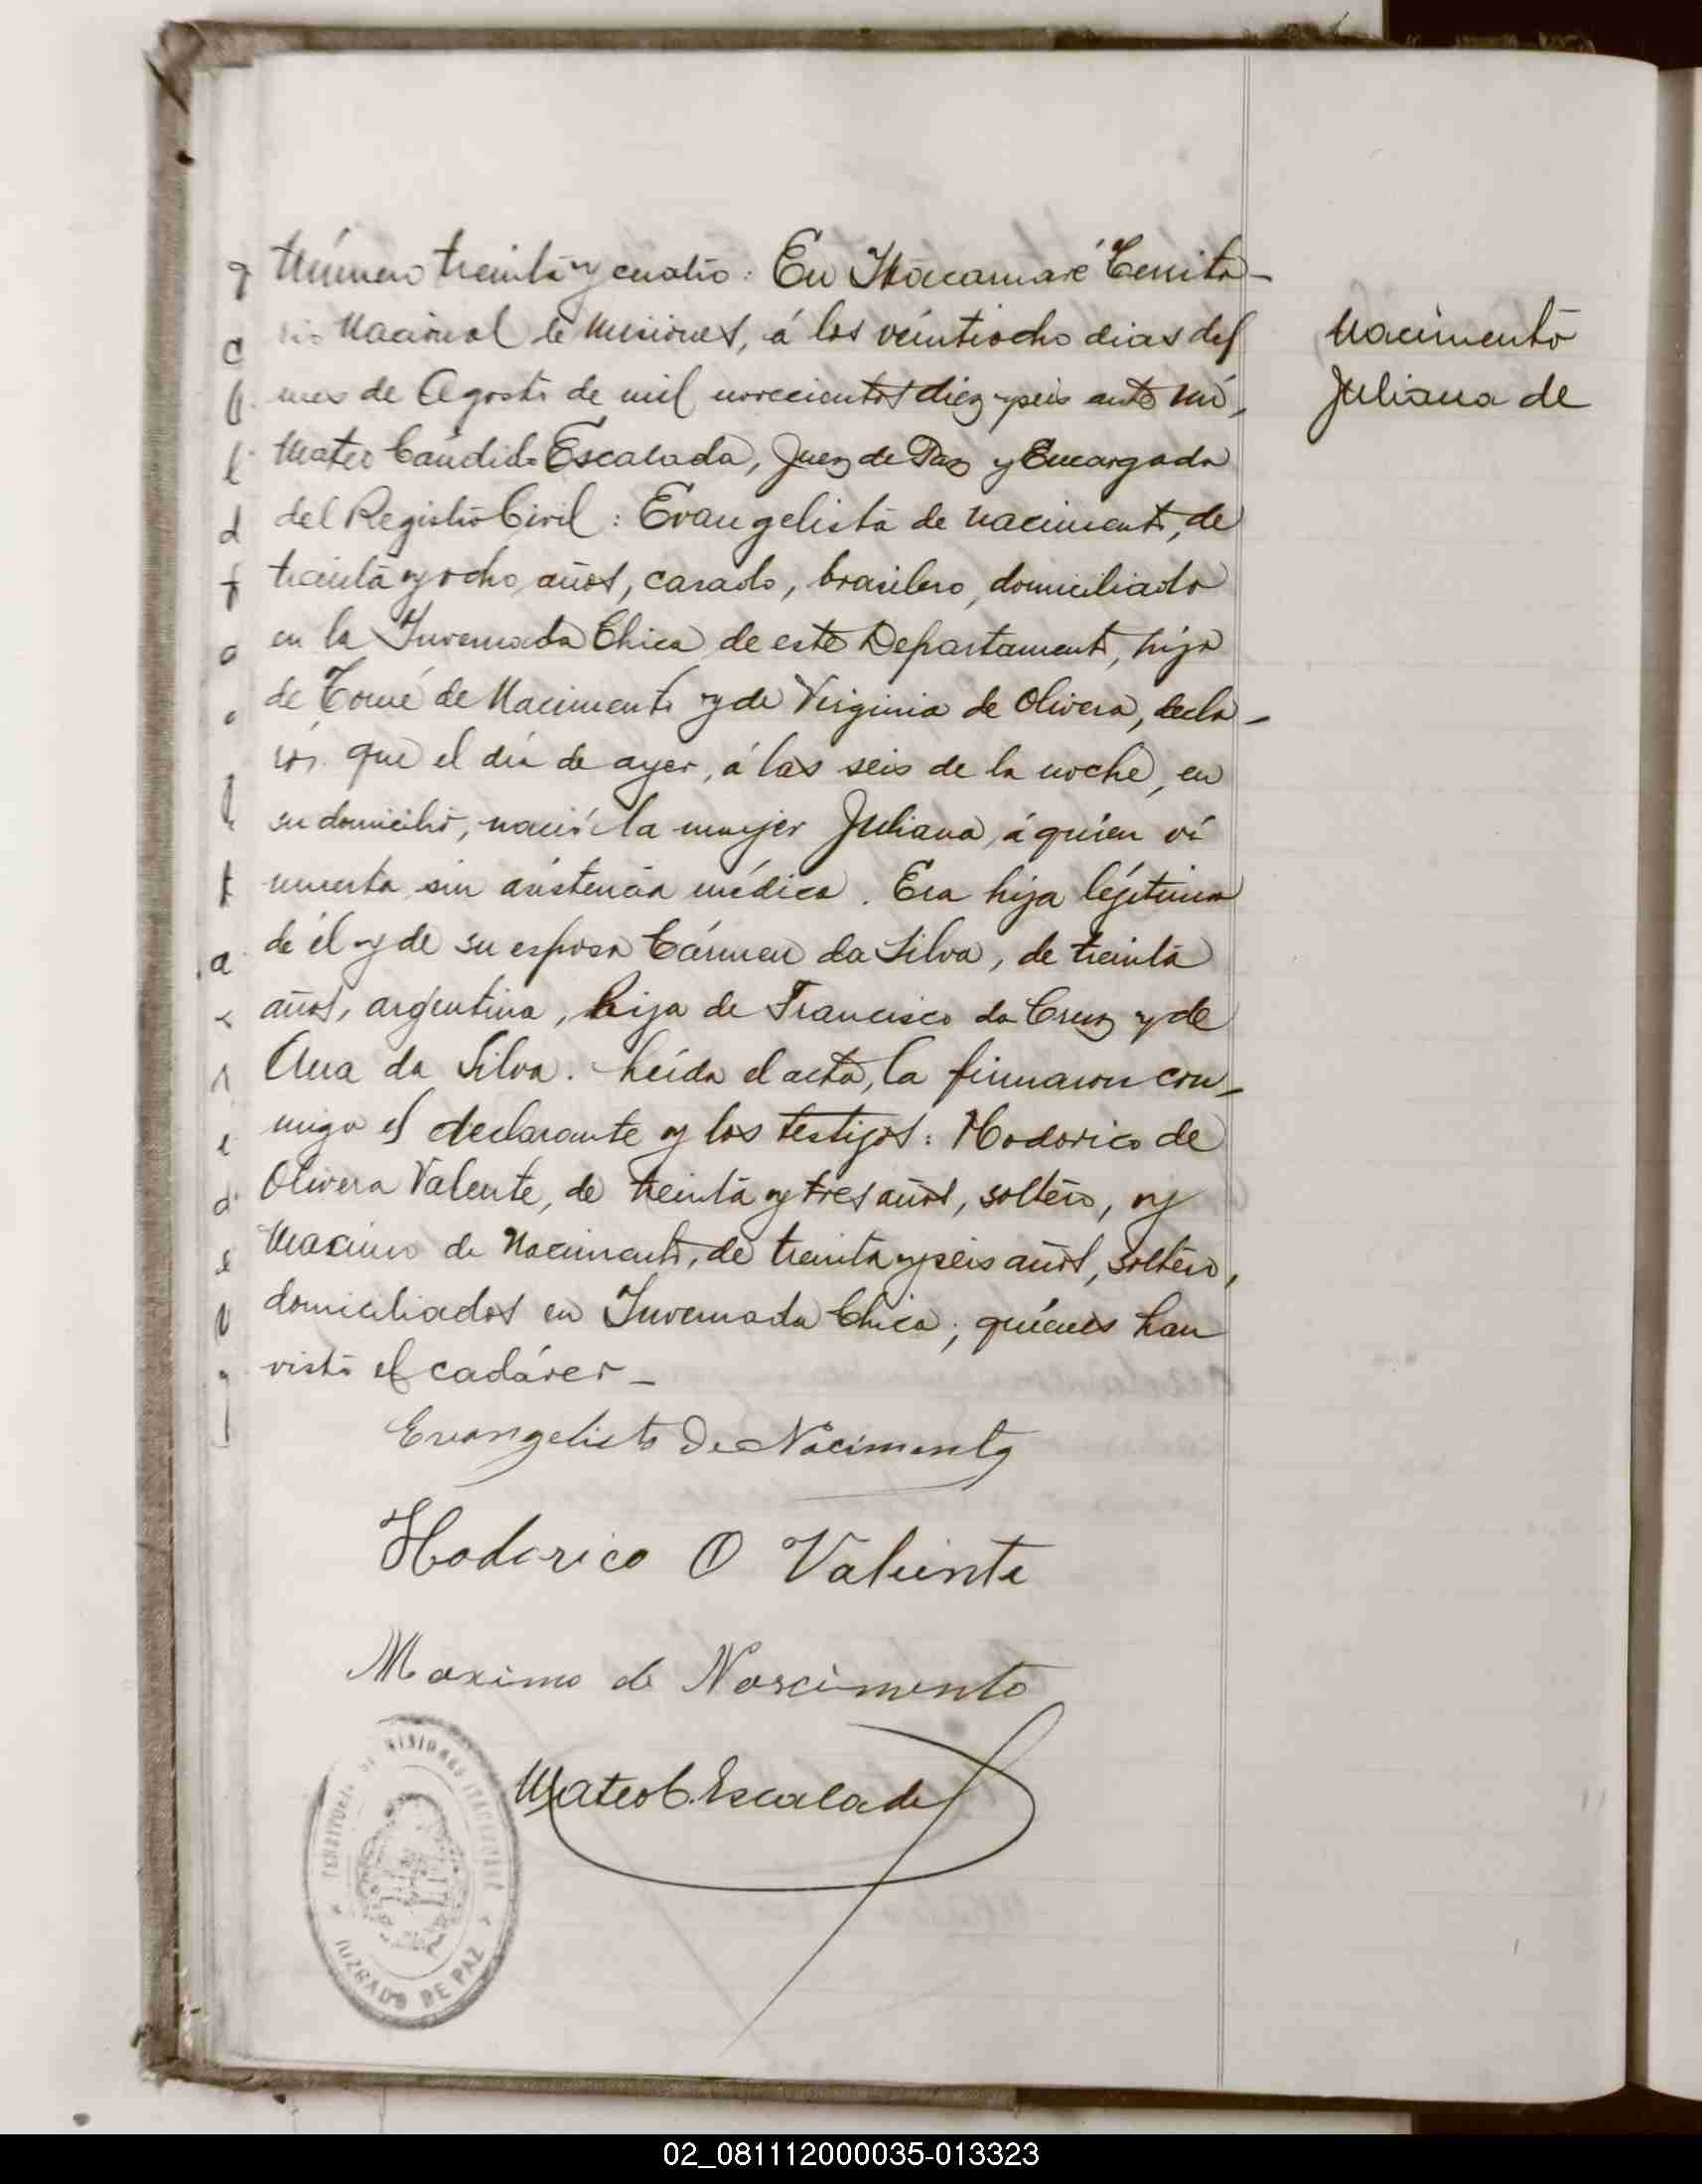 Número treinta y cuatro: En Itacaruaré Territo-
rio Nacional de Misiones, á los veintiocho dias del
mes de Agosto de mil novecientos diez y seis ante mí,
Mateo Cándido Escalada, Juez de Paz y Encargado
del Registro Civil: Evangelista de Nacimento, de
treinta y ocho años, casado, brasilero, domiciliado
en la Invernada Chica de este Departamento, hijo
de Tomé de Nacimento y de Virginia de Olivera, decla-
ró: que el día de ayer, á las seis de la noche, en
su domicilio, nació la mujer Juliana, á quien ví
muerta sin asistencia médica. Era hija lejítima
de él y de su esposa Cármen da Silva, de treinta
años, argentina, hija de Francisco da Cruz y de
Ana da Silva. Leída el acta, la firmaron con-
migo el declarante y los testigos: Hodorico de
Olivera Valente, de treinta y tres años, soltero, y
Maximo de Nacimento, de treinta y seis años, soltero,
domiciliados en Invernada Chica; quiénes han
visto el cadáver -
Nacimento
Juliana de
Evangelista De Nacimento
Hodorico O Valiente
Maximo de Nascimento
Mateo C. Escalada
TERRITORIO DE MISIONES
JUZGADO DE PAZ
02_081112000035-013323